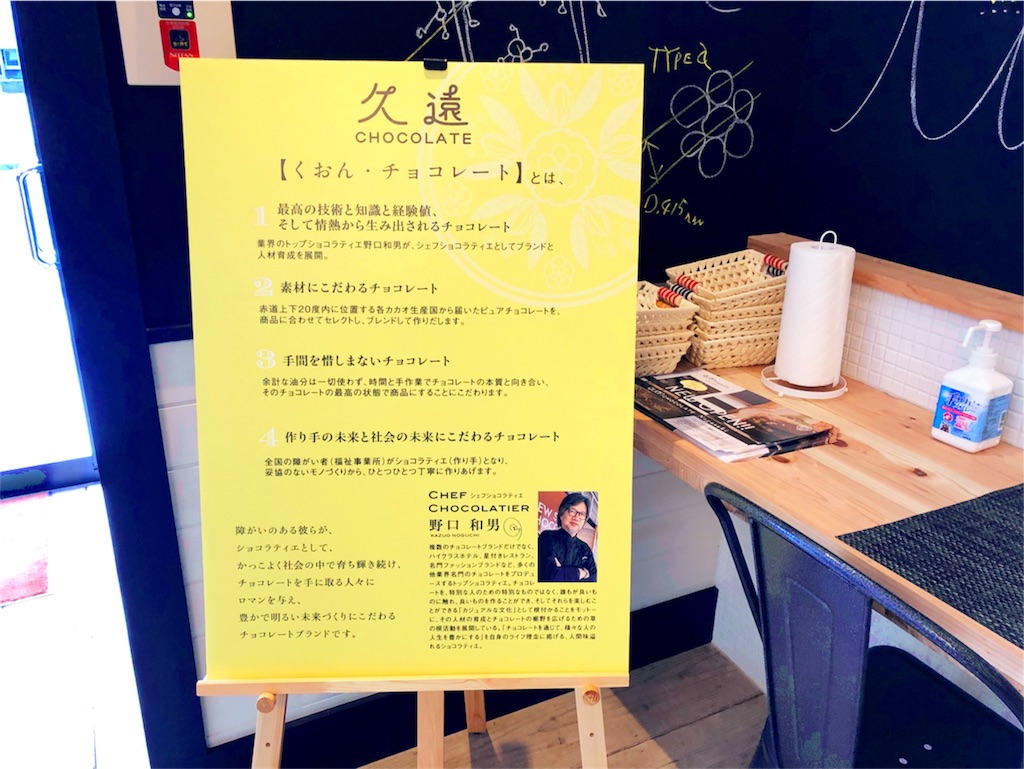 久遠
CHOCOLATE
【くおん・チョコレート】とは、
1 最高の技術と知識と経験値、
そして情熱から生み出されるチョコレート
業界のトップショコラティエ野口和男が、シェフショコラティエとしてブランドと
人材育成を展開。
2 素材にこだわるチョコレート
赤道上下20度内に位置する各カカオ生産国から届いたピュアチョコレートを、
商品に合わせてセレクトし、ブレンドして作りだします。
3 手間を惜しまないチョコレート
余計な油分は一切使わず、時間と手作業でチョコレートの本質と向き合い、
そのチョコレートの最高の状態で商品にすることにこだわります。
4 作り手の未来と社会の未来にこだわるチョコレート
全国の障がい者（福祉事業所）がショコラティエ（作り手）となり、
妥協のないモノづくりから、ひとつひとつ丁寧に作りあげます。
障がいのある彼らが、
ショコラティエとして、
かっこよく社会の中で育ち輝き続け、
チョコレートを手に取る人々に
ロマンを与え、
豊かで明るい未来づくりにこだわる
チョコレートブランドです。
CHEF シェフショコラティエ
CHOCOLATIER
野口 和男
KAZUO NOGUCHI
複数のチョコレートブランドだけでなく、
ハイクラスホテル、星付きレストラン、
名門ファッションブランドなど、多くの
他業界名門のチョコレートをプロデュ
ースするトップショコラティエ。チョコレ
ートを、特別な人のための特別なものではなく、誰もが良いも
のに触れ、良いものを作ることができ、そしてそれらを楽しむこ
とができる「カジュアルな文化」として根付かることをモットー
に、その人材の育成とチョコレートの裾野を広げるための草
の根活動を展開している。「チョコレートを通じて、様々な人の
人生を豊かにする」を自身のライフ理念に掲げる、人間味溢
れるショコラティエ。
TYPE a
0.415nm
NEW OPEN!!